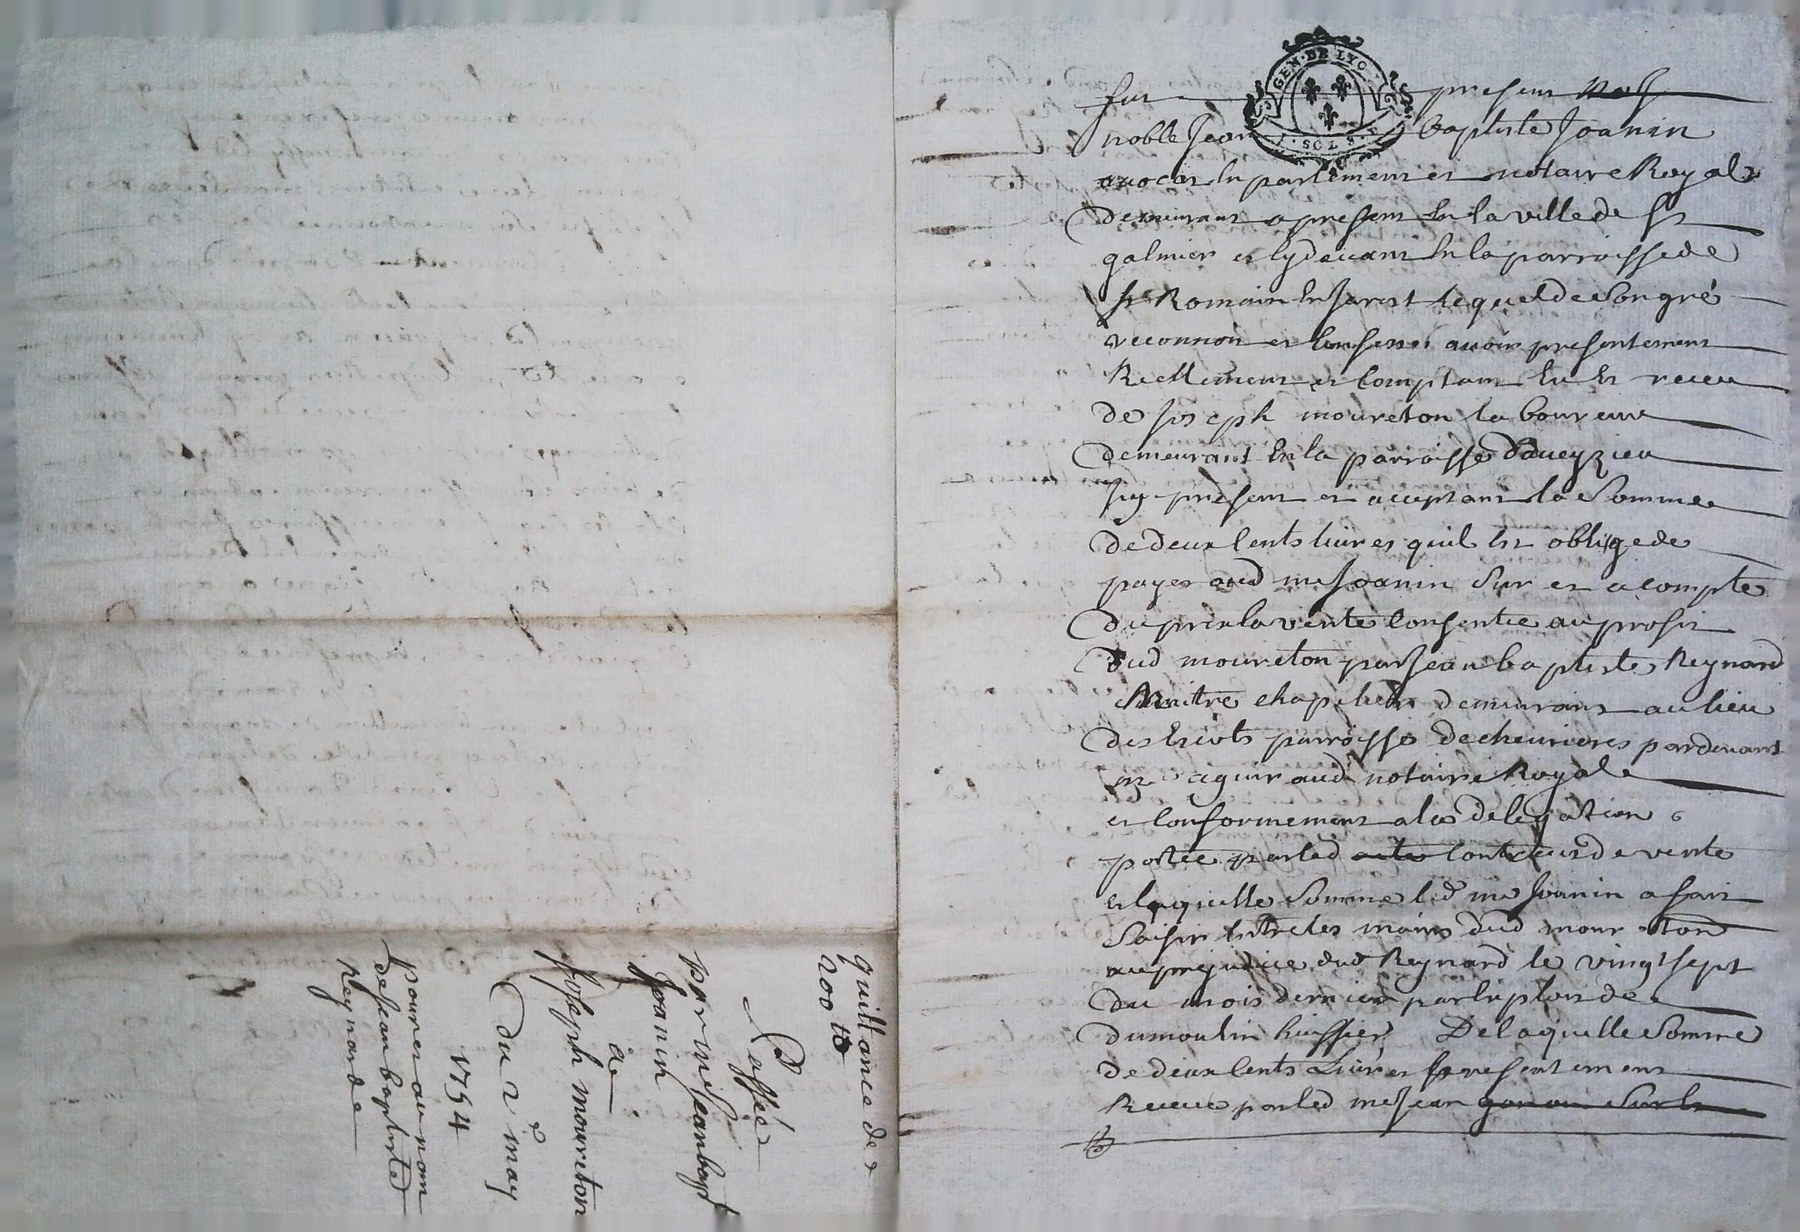 quittance de
200 lt
Passée
par me Jean bapt
Joanin
a
Joseph moureton
du 2 may
1754
pour et au nom
de Jean baptiste
Reynard
GEN · DE LYO
SOLS
fut present
noble Jean baptiste Joanin
avocat en parlement et notaire Royal
demeurant a present en la ville de st
galmier et cydevant en la parroisse de
st Romain en Jarest lequel de son gré
reconnoit et confesse avoir presentement
Reellement et comptant eu et receu
de Joseph moureton laboureur
demeurant en la parroisse daveyzieu
icy present et acceptant la somme
de deux cents livres quil est obligé de
payer aud me Joanin sur et a compte
du prix la vente consentie au profit
dud moureton par Jean baptiste Reynard
Maitre chapelier demeurant au lieu
des parroisse de chevrieres pardevant
me notaire Royal
et conformement a la delegation
portée par led acte contract de vente
et laquelle somme led me Joanin a fait
saisir entre les mains dud moureton
au prejudice dud Reynard le vingt sept
du mois dernier par exploit de
dumoulin huissier De laquelle somme
de deux cents Livres presentement
Receue par led me Jean